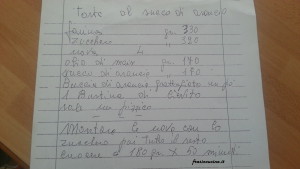 Torta al succo di arancio
farina gr. 330
zucchero " 320
uova 4
olio di mais gr. 170
succo di arancio " 170
Buccia di arancio grattugiata un po'
1 Bustina di lievito
sale un pizzico
Montare le uova con lo
zucchero poi tutto il resto
cuocere a 180 gr. x 45 minuti